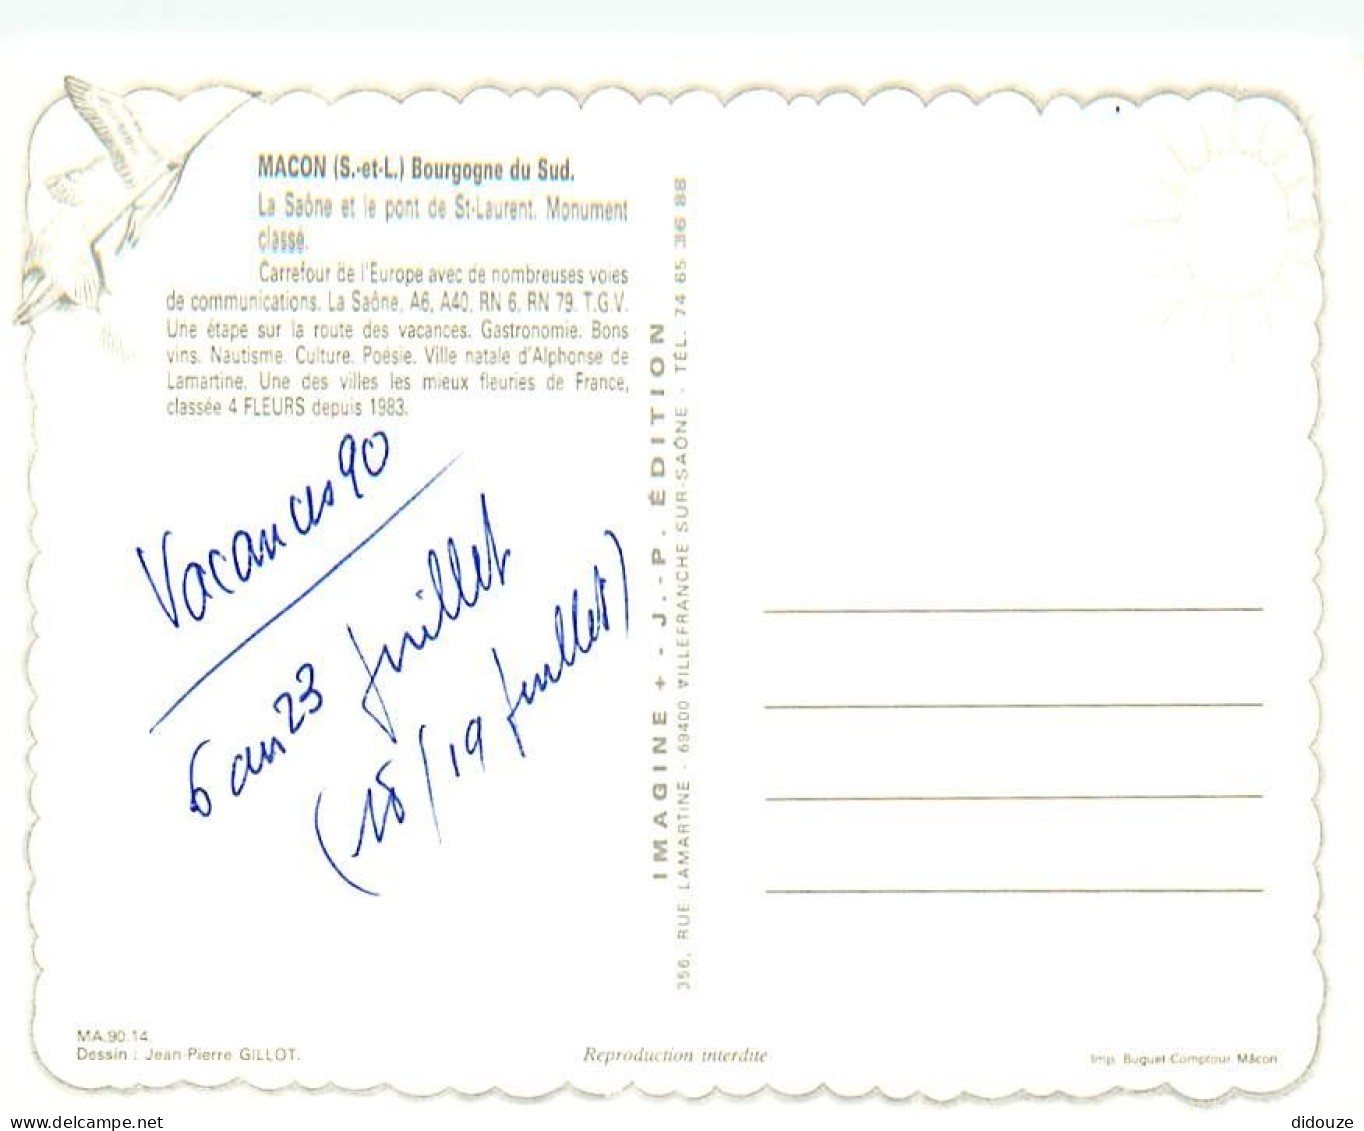 MACON (S.-et-L.) Bourgogne du Sud.
La Saône et le pont de St-Laurent. Monument
classé.
Carrefour de l'Europe avec de nombreuses voies
de communications. La Saône, A6, A40, RN 6, RN 79. T.G.V.
Une étape sur la route des vacances. Gastronomie. Bons
vins. Nautisme. Culture. Poésie. Ville natale d'Alphonse de
Lamartine. Une des villes les mieux fleuries de France,
classée 4 FLEURS depuis 1983.
Vacances 90
6 au 23 Juillet
(18/19 Juillet)
IMAGINE + - J.-P. ÉDITION
356, RUE LAMARTINE - 69400 VILLEFRANCHE SUR-SAÔNE - TÉL. 74 65 36 88
MA.90.14.
Dessin : Jean-Pierre GILLOT.
Reproduction interdite
Imp. Buguet-Comptour Mâcon
delcampe.net
didouze